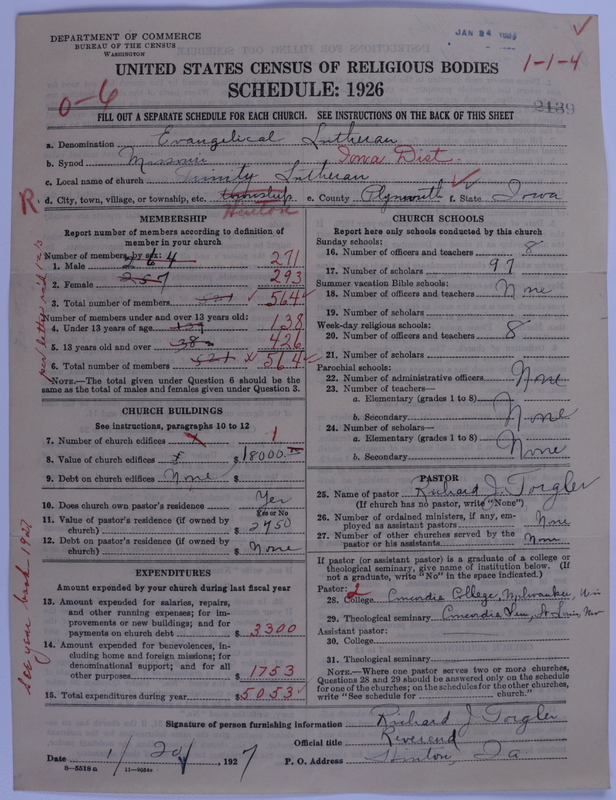 DEPARTMENT OF COMMERCE
BUREAU OF THE CENSUS
WASHINGTON
JAN 24
UNITED STATES CENSUS OF RELIGIOUS BODIES
1-1-4
SCHEDULE: 1926
0-6
2139
FILL OUT A SEPARATE SCHEDULE FOR EACH CHURCH. SEE INSTRUCTIONS ON THE BACK OF THIS SHEET
a. Denomination Evangelical Lutheran
b. Synod Missouri Iowa Dist.
c. Local name of church Trinity Lutheran
R. d. City, town, village, or township, etc. township e. County Plymouth f. State Iowa
Hinton
MEMBERSHIP
Report number of members according to definition of
member in your church
Number of members, by sex:
1. Male 264 271
2. Female 257 293
3. Total number of members 521 564
Number of members under and over 13 years old:
4. Under 13 years of age 138
5. 13 years old and over 426
6. Total number of members 521 564
NOTE.—The total given under Question 6 should be
the same as the total of males and females given under Question 3.
CHURCH BUILDINGS
See instructions, paragraphs 10 to 12
7. Number of church edifices 1
8. Value of church edifices $ 18000
9. Debt on church edifices None $
10. Does church own pastor's residence Yes
Yes or No
11. Value of pastor's residence (if owned by
church) $ 2750
12. Debt on pastor's residence (if owned by
church) $ None
EXPENDITURES
Amount expended by your church during last fiscal year
13. Amount expended for salaries, repairs,
and other running expenses; for im-
provements or new buildings; and for
payments on church debt $ 3300
14. Amount expended for benevolences, in-
cluding home and foreign missions; for
denominational support; and for all
other purposes $ 1753
15. Total expenditures during year $ 5053
See year book 1927
CHURCH SCHOOLS
Report here only schools conducted by this church
Sunday schools:
16. Number of officers and teachers 8
17. Number of scholars 97
Summer vacation Bible schools:
18. Number of officers and teachers None
19. Number of scholars
Week-day religious schools:
20. Number of officers and teachers 8
21. Number of scholars
Parochial schools:
22. Number of administrative officers None
23. Number of teachers—
a. Elementary (grades 1 to 8)
b. Secondary None
24. Number of scholars—
a. Elementary (grades 1 to 8)
b. Secondary None
PASTOR
25. Name of pastor Richard J. Torgler
(If church has no pastor, write "None")
26. Number of ordained ministers, if any, em-
ployed as assistant pastors None
27. Number of other churches served by the
pastor or his assistants None
If pastor (or assistant pastor) is a graduate of a college or
theological seminary, give name of institution below. (If
not a graduate, write "No" in the space indicated.)
Pastor: 2
28. College Concordia College, Milwaukee, Wis
29. Theological seminary Concordia Sem, St Louis, Mo
Assistant pastor:
30. College
31. Theological seminary
NOTE.—Where one pastor serves two or more churches,
Questions 28 and 29 should be answered only on the schedule
for one of the churches; on the schedules for the other churches,
write "See schedule for church."
Signature of person furnishing information Richard J Torgler
Official title Reverend
Date 1/20/, 1927 P. O. Address Hinton, Ia.
8—5518a 11—9054